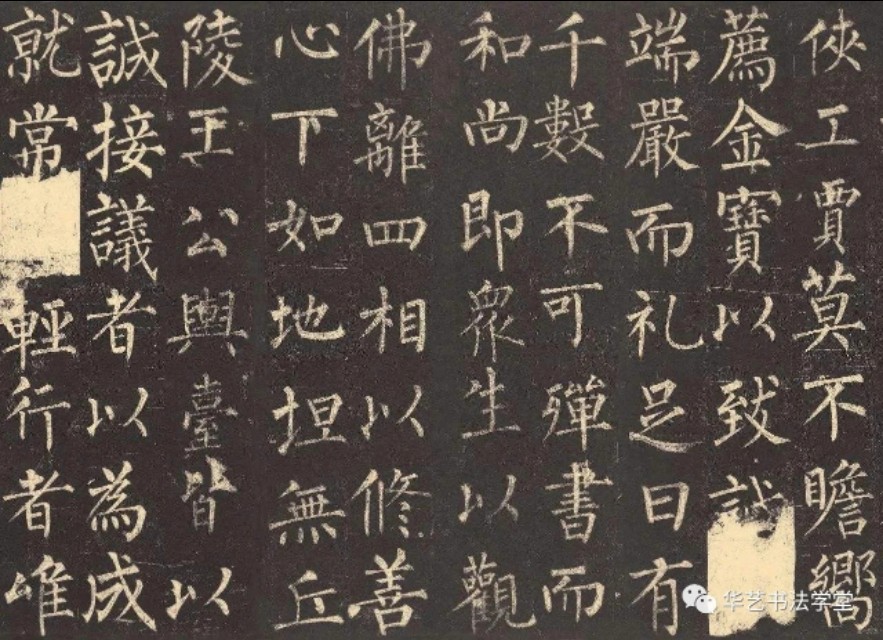 俠工賈莫不瞻嚮
薦金寶以致誠
端嚴而礼足日有
千數不可殫書而
和尚即眾生以觀
佛離四相以修善
心下如地坦無丘
陵王公輿臺皆以
誠接議者以為成
就常輕行者唯
华艺书法学堂